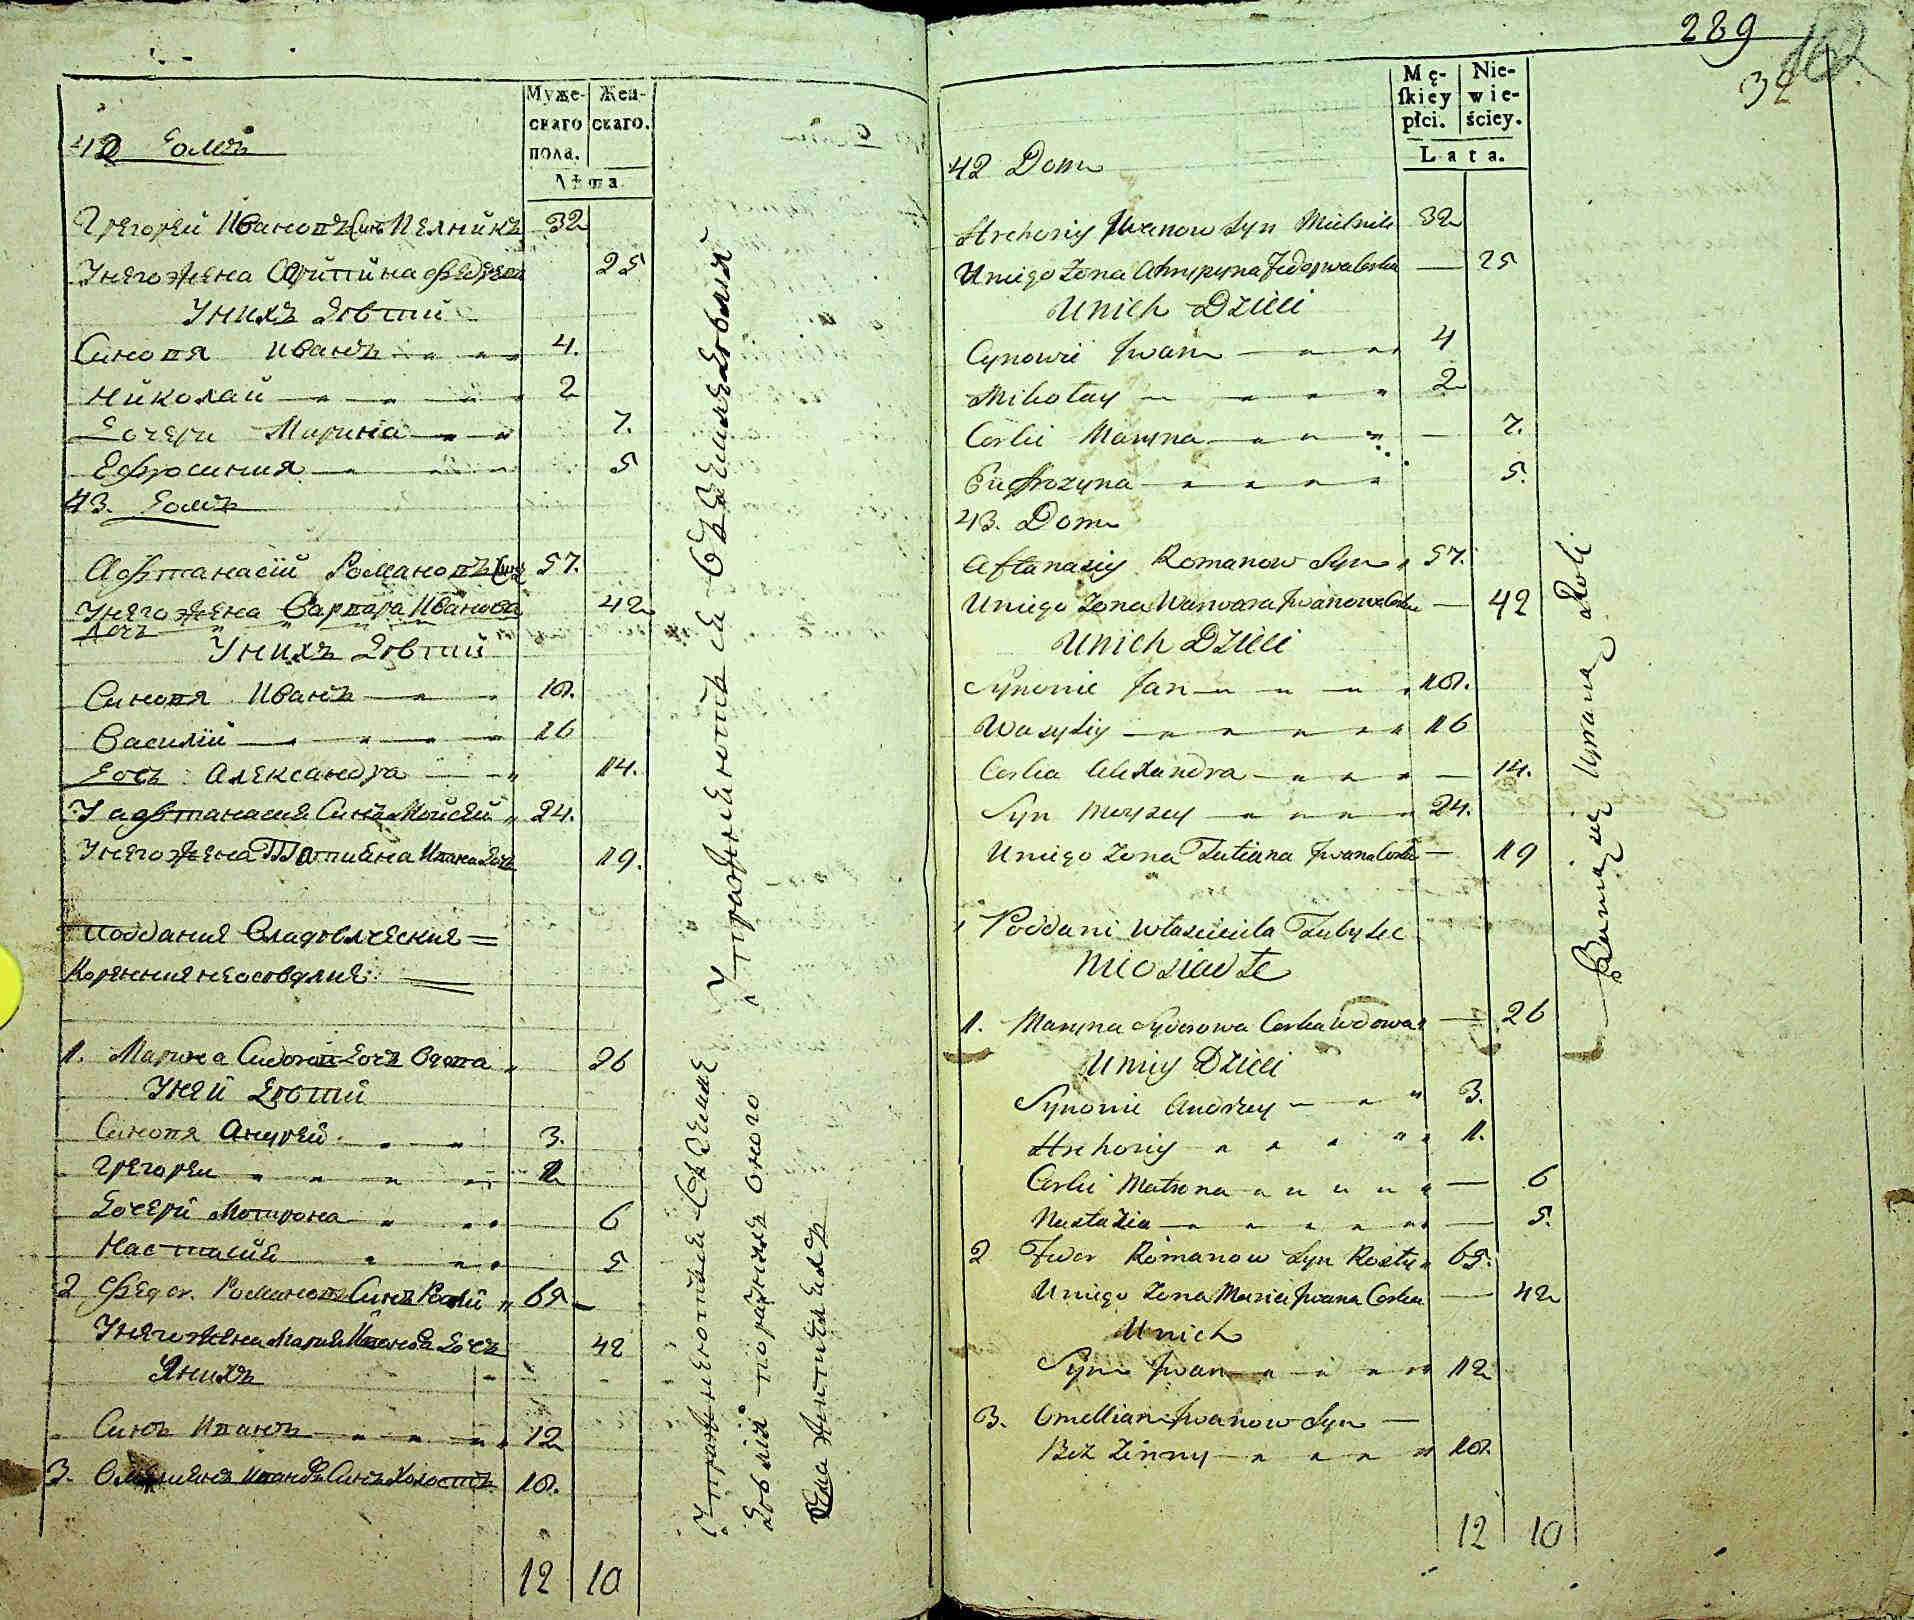 Муже- Жен-
скаго скаго.
пола.
Лѣта
42 Домъ
Грегорей Ивановъ Синъ Мелникъ 32
Унего Жена Фед 25
Унихъ Дѣти
Синовя Иванъ 4.
Николай 2
Дочери Марина 7.
Ефросиния 5
43. Домъ
Афтанасій Романовъ Синъ 57.
Унего жена Варвара Иванова 42
Дочъ
Унихъ Дѣтий
Синовя Иванъ 18.
Василій 16
Дочъ Александра 14.
У афтанасия Синъ Мойсей 24.
Унего Жена Татияна Ивана Дочъ 19.
Поддания Владѣлческия
Коренния неоседлия
1. Марина Сидоровъ Дочъ Вдова 26
Уней Дѣтий
Синовя Андрей 3.
Грегореи 1
Дочери Мотирона 6
Настасия 5
2 Федор. Романовъ Синъ 65
Унего жена Мария Иванова Дочъ 42
Унихъ
Синъ Иванъ 12
3. Омелиянъ Ивановъ Синъ Холостъ 18.
12 10
289
162
32
Mę- Nie-
skiey wie-
płci. ściey.
Lata.
42 Dom
Hrehoriy Iwanow Syn Mielnik 32
Uniego Zona Ahrypyna Fedorowa Corka 25
Unich Dzieci
Cynowie Iwan 4
Mikołay 2
Corki Maryna 7.
Eufrozyna 5.
43. Dom
Aftanasiy Romanow Syn 57.
Uniego Zona Warwara Iwanowa Corka 42
Unich Dzieci
Synowie Jan 18.
Wasyliy 16
Corka Alexandra 14.
Syn Moyzey 24.
Uniego Zona Tatiana Iwana Corka 19
Poddani Własciciela
Nieosiadłe
1. Maryna Sydorowa Corka Wdowa 26
Uniey Dzieci
Synowie Andrzey 3.
Hrehoriy 1.
Corki Matrona 6
Nastazia 5.
2 Fedor Romanow Syn 65.
Uniego Zona Maria Iwana Corka 42
Unich
Syn Iwan 12
3. Omellian Iwanow Syn
Bez Zenny 18
12 10